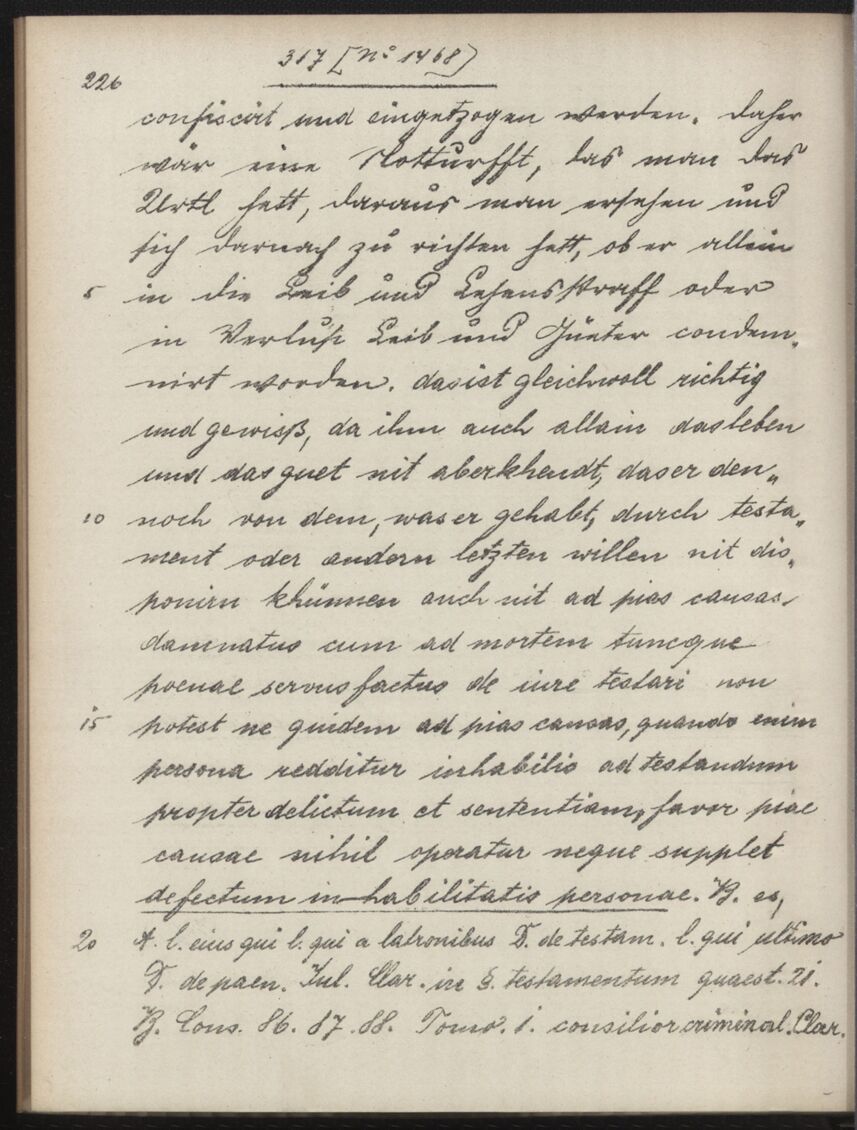 226
317 [No 1468)
confiscirt und eingetzogen werden. Daher
wär eine Notturfft, das man das
Urtl hett, daraus man ersehen und
sich darnach zu richten hett, ob er allein
5 in die Leib und Lebensstraff oder
in Verlust Leib und Güeter condem„
nirt worden. das ist gleichwoll richtig
und gewiß, da ihm auch allain das leben
und das guet nit aberkhendt, das er den„
10 noch von dem, was er gehabt, durch testa„
ment oder andern letzten willen nit dis„
ponirn khünnen auch nit ad pias causas.
damnatus cum ad mortem tuncque
poenae servus factus de iure testari non
15 potest ne quidem ad pias causas, quando enim
persona redditur inhabilis ad testandum
propter delictum et sententiam, favor piae
causae nihil operatur neque supplet
defectum inhabilitatis personae. B. es,
20 t. l. eius qui l. qui a latronibus D. de testam. l. qui ultimo
D. de paen. Jul. Clar. in §. testamentum quaest. 21.
B. Cons. 86. 87. 88. Tomo. 1. consilior criminal. Clar.